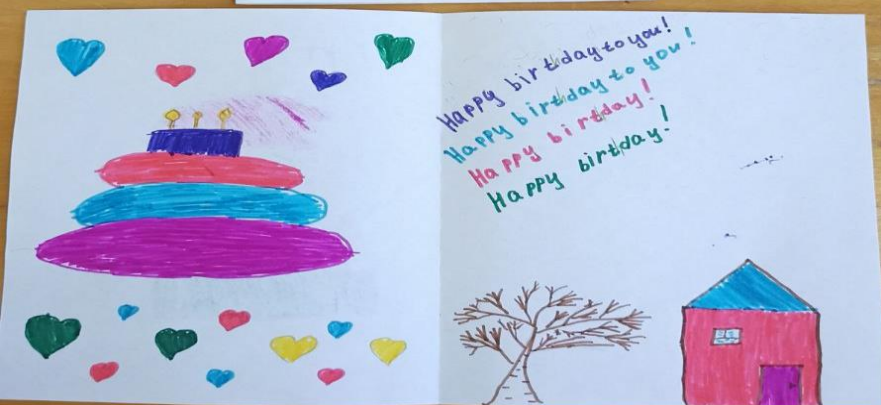 Happy birtday to you!
Happy birtday to you!
Happy birtday!
Happy birtday!